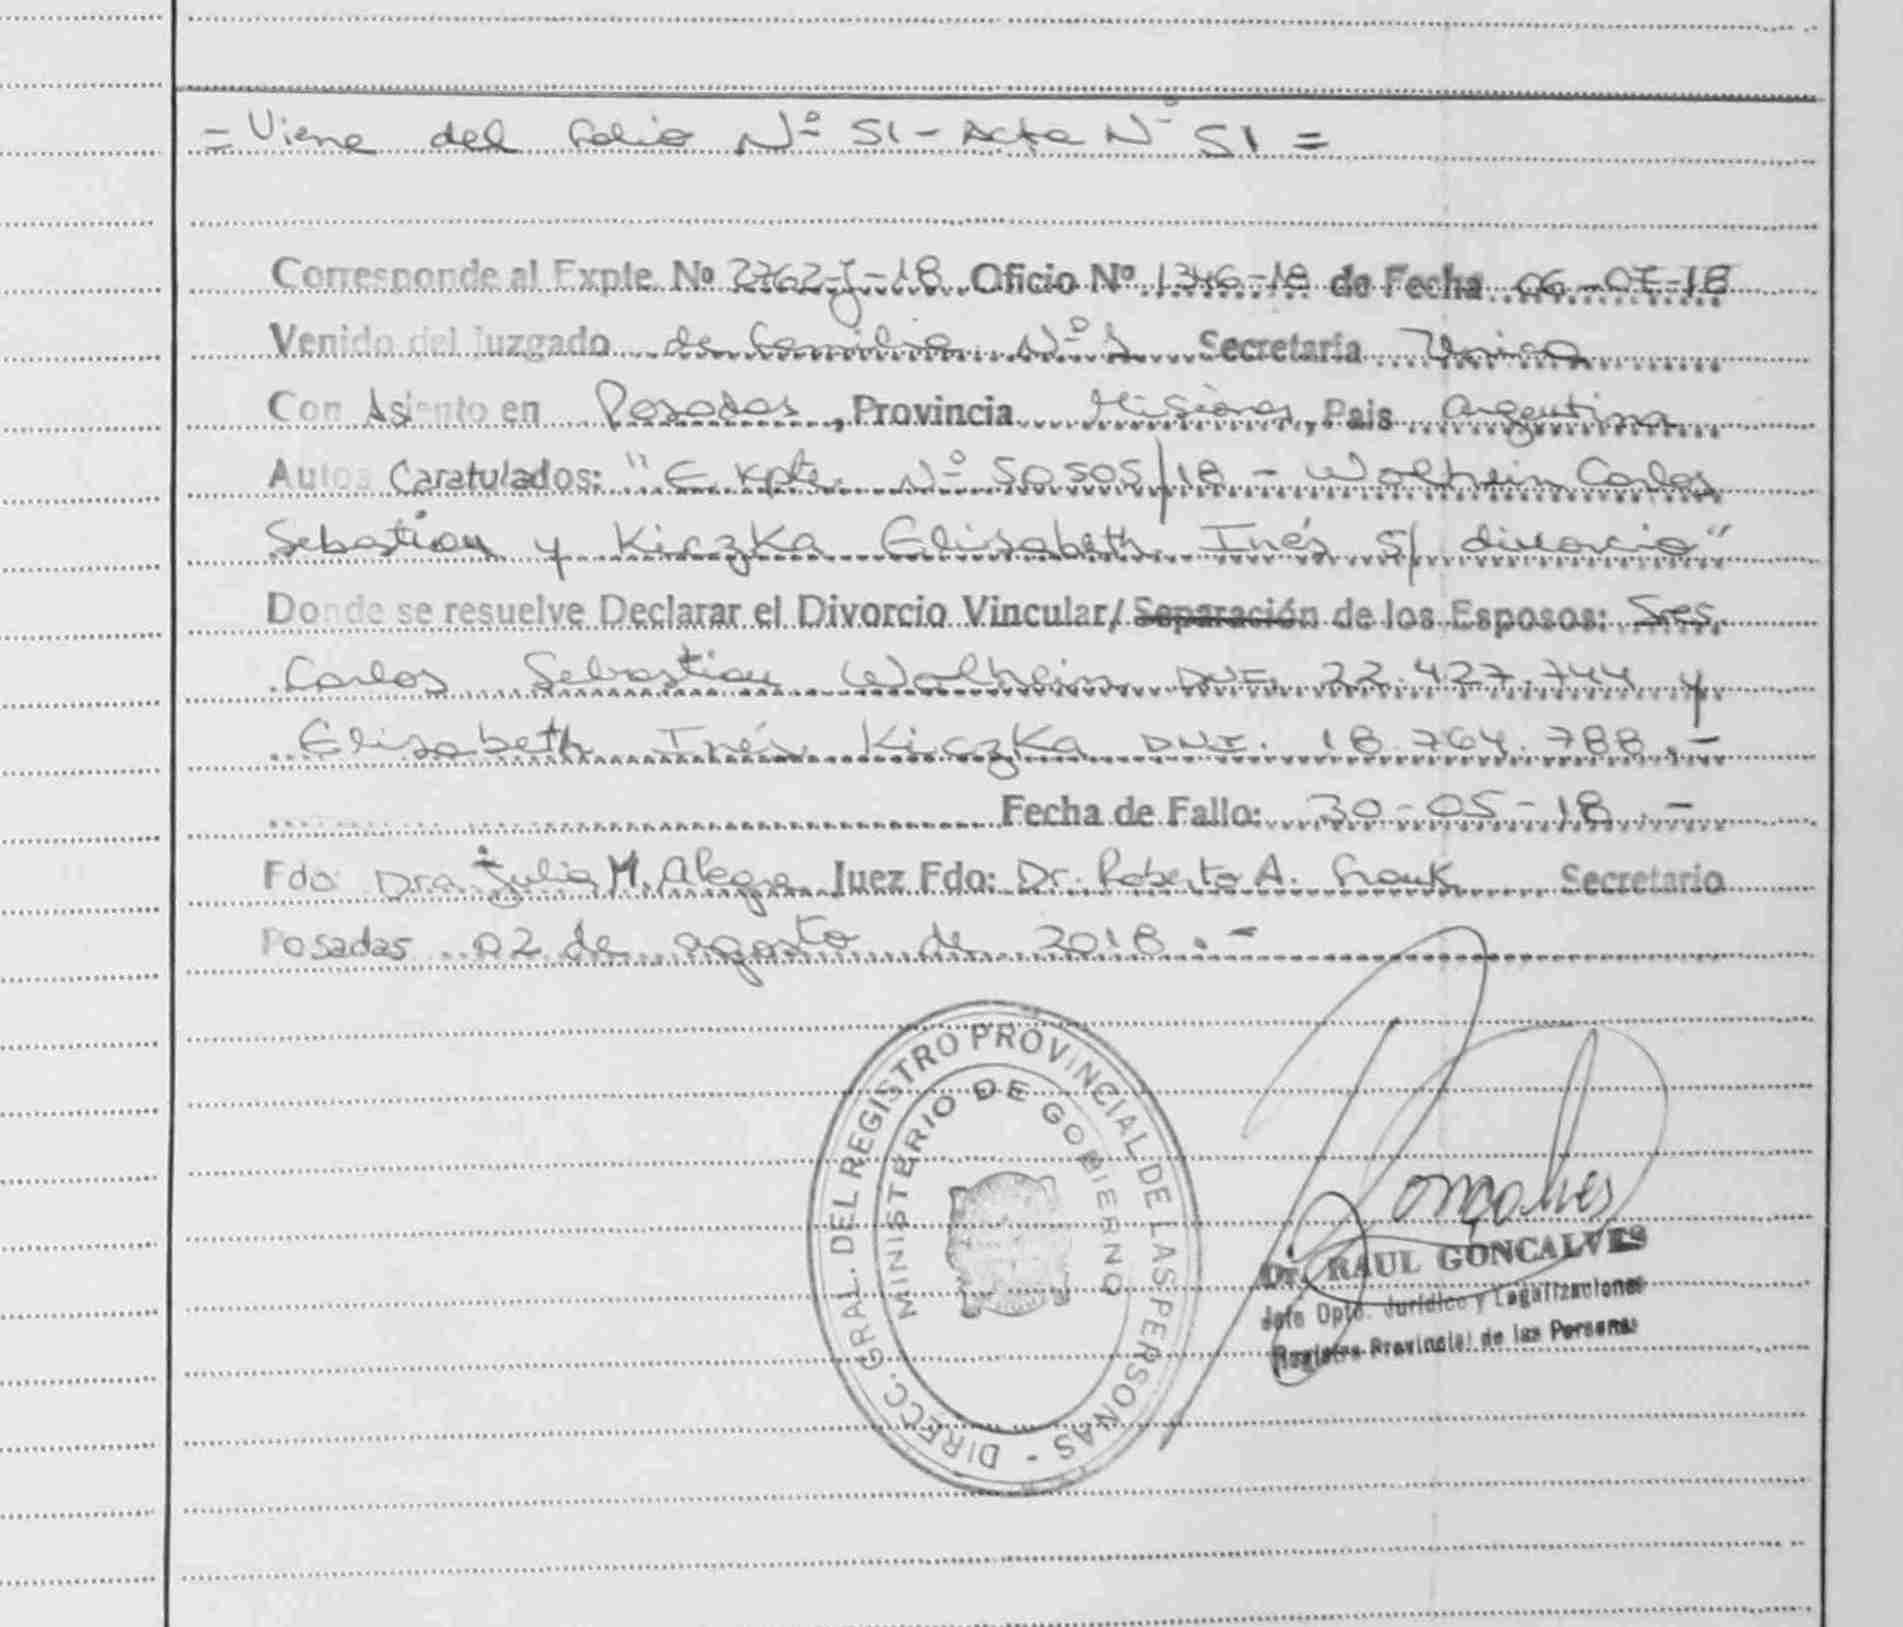 = Viene del Folio Nº 51 - Acta Nº 51 =
Corresponde al Expte. Nº 2762-J-18 Oficio Nº 1346-18 de Fecha 06-07-18
Venido del Juzgado de Familia Nº 1 Secretaría Unica
Con Asiento en Posadas, Provincia Misiones, Pais Argentina
Autos Caratulados: "Expte. Nº 50505/18 - Wolhein Carlos
Sebastian y Kiczka Elisabeth Inés S/ divorcio"
Donde se resuelve Declarar el Divorcio Vincular/ Separación de los Esposos: Sres.
Carlos Sebastian Wolhein DNI. 22.427.744 y
Elisabeth Inés Kiczka DNI. 18.764.788.-
Fecha de Fallo: 30-05-18.-
Fdo: Dra. Julia M. Alegre Juez Fdo: Dr. Roberto A. Frank Secretario
Posadas 02 de agosto de 2018.-
DIRECC. GRAL. DEL REGISTRO PROVINCIAL DE LAS PERSONAS -
MINISTERIO DE GOBIERNO
Gonçalves
Dr. RAUL GONCALVES
Jefe Dpto. Jurídico y Legalizaciones
Registro Provincial de las Personas